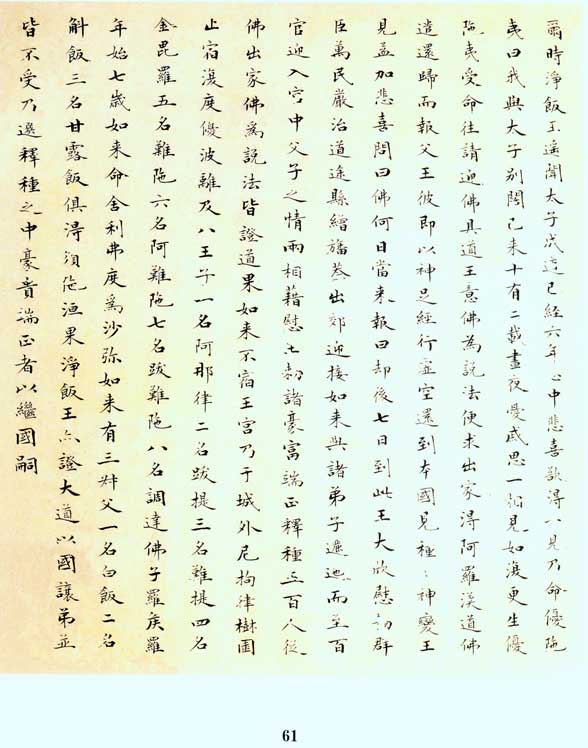 爾時淨飯王遙聞太子成道已經六年心中悲喜欲得以見乃命優陁
夷曰我與太子别闊已来十有二載晝夜憂慼思一相見如復更生優
陁夷受命往請迎佛具道王意佛為說法便求出家得阿羅漢道佛
遣還歸而報父王彼即以神足經行虛空還到本國見種〻神變王
見益加悲喜問曰佛何日當来報曰却後七日到此王大欣慰勅群
臣萬民嚴治道途縣繒旛葢出郊迎接如来與諸弟子邐迤而至百
官迎入宫中父子之情兩相藉慰王勅諸豪富端正釋種五百人從
佛出家佛為說法皆證道果如来不宿王宫乃于城外尼拘律樹園
止宿復度優波離及八王子一名阿那律二名跋提三名難提四名
金毘羅五名難陁六名阿難陁七名跋難陁八名調達佛子羅矦羅
年始七歲如来命舍利弗度為沙弥如来有三叔父一名白飯二名
斛飯三名甘露飯俱得須陁洹果淨飯王亦證大道以國讓弟並
皆不受乃選釋種之中豪貴端正者以繼國嗣
61